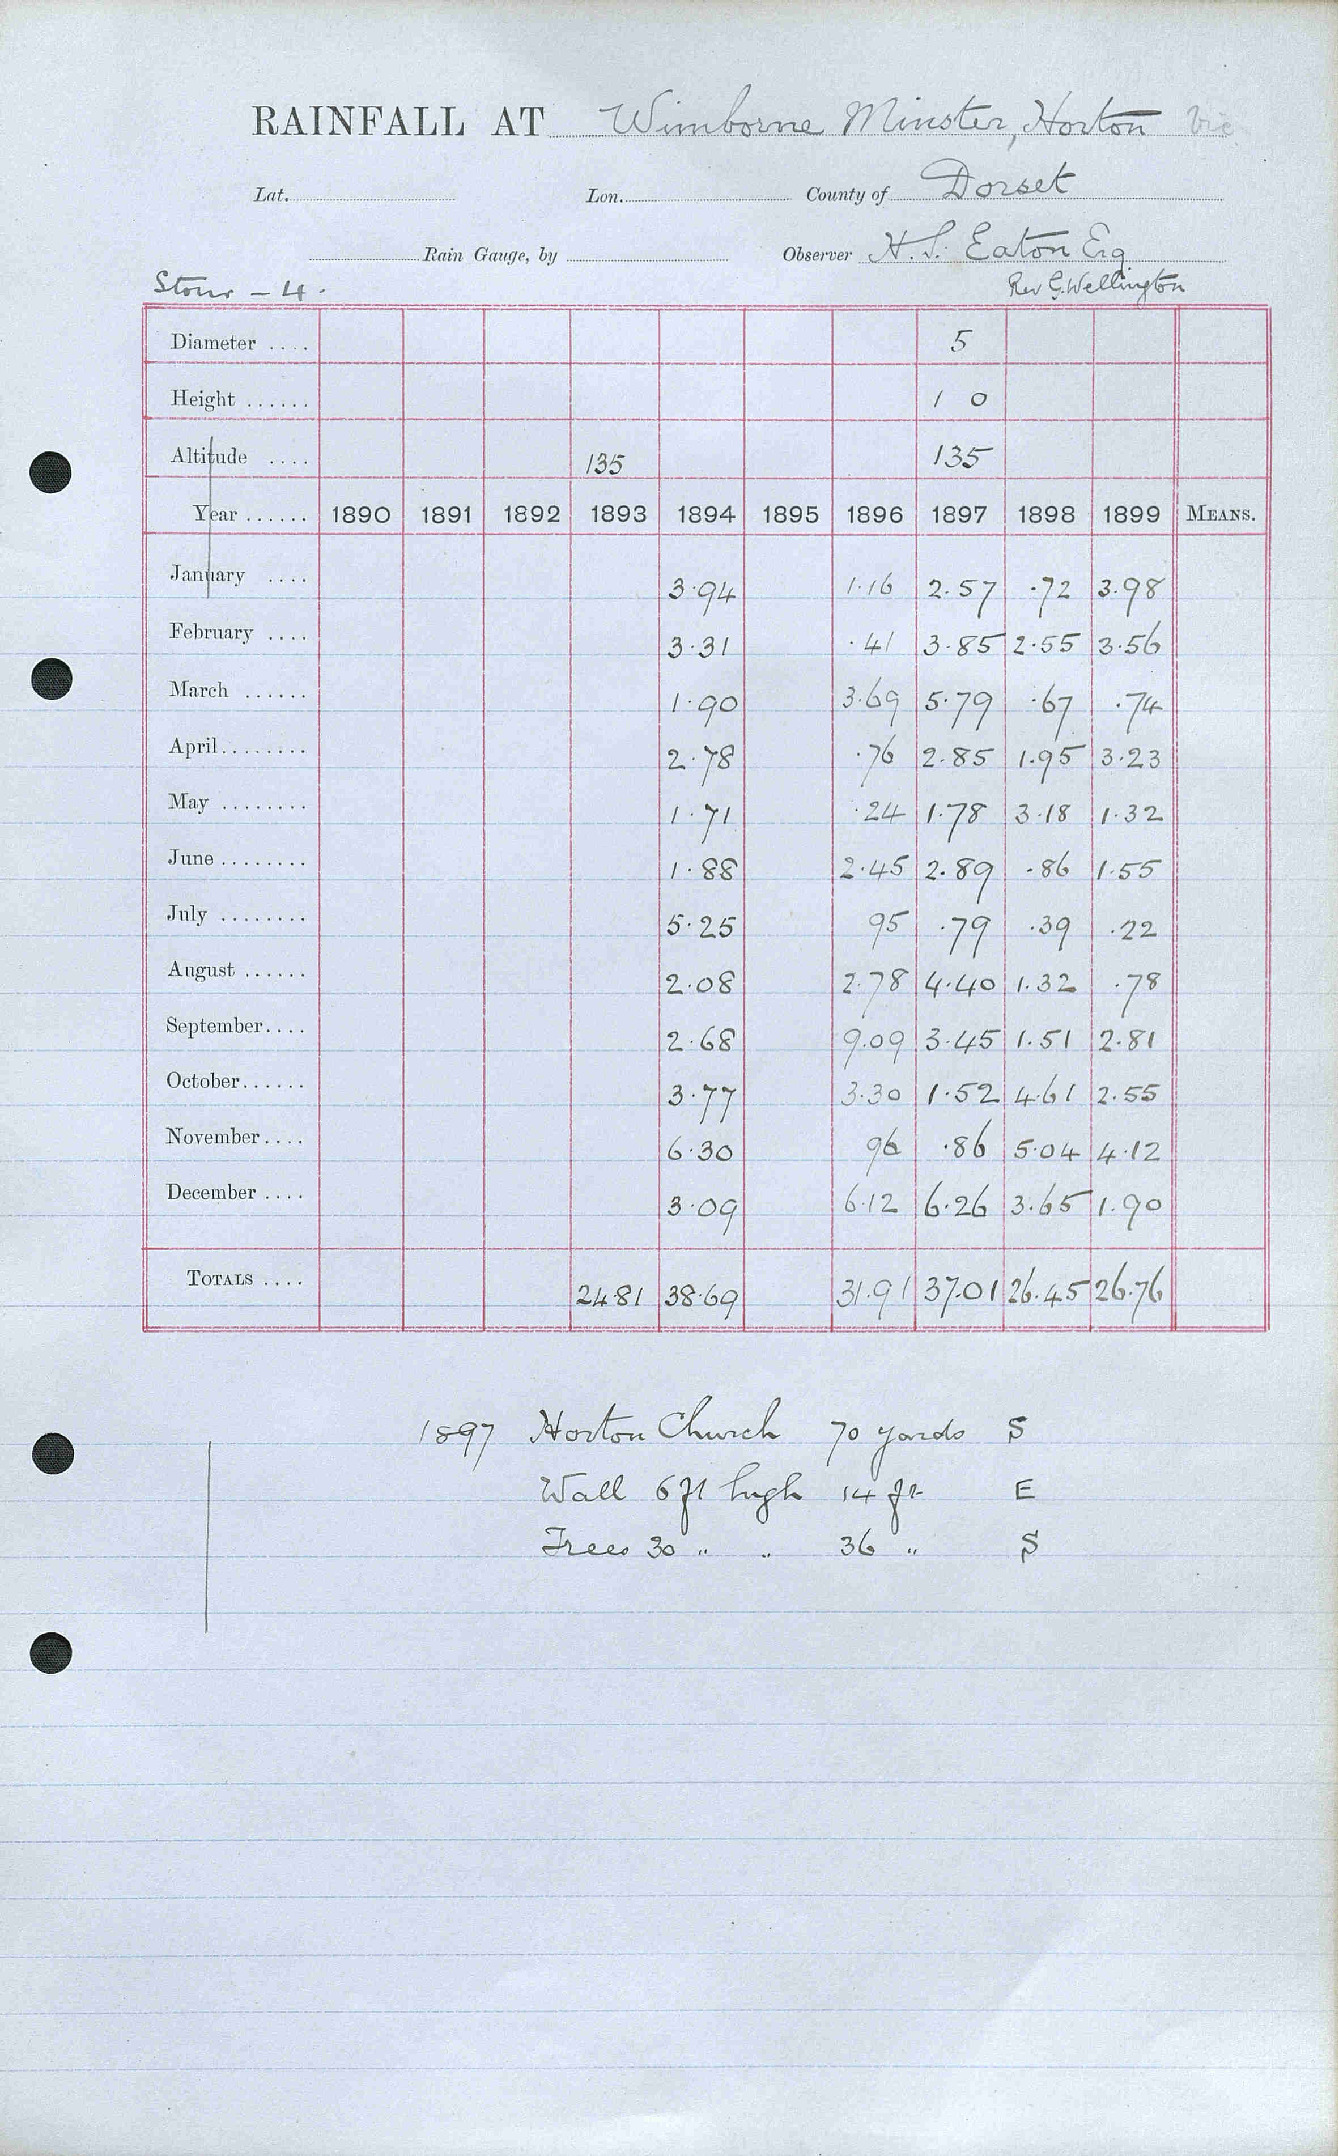 RAINFALL AT Wimborne Minster, Horton Vic
Lat. Lon. County of Dorset
Rain Gauge, by Observer H. S. Eaton Esq
Stour - 4. Rev G. Wellington
Diameter .... 5
Height ...... 1 0
Altitude .... 135 135
Year ...... 1890 1891 1892 1893 1894 1895 1896 1897 1898 1899 MEANS.
January .... 3.94 1.16 2.57 .72 3.98
February .... 3.31 .41 3.85 2.55 3.56
March ...... 1.90 3.69 5.79 .67 .74
April........ 2.78 .76 2.85 1.95 3.23
May ........ 1.71 .24 1.78 3.18 1.32
June ........ 1.88 2.45 2.89 .86 1.55
July ........ 5.25 95 .79 .39 .22
August ...... 2.08 2.78 4.40 1.32 .78
September.... 2.68 9.09 3.45 1.51 2.81
October...... 3.77 3.30 1.52 4.61 2.55
November.... 6.30 96 .86 5.04 4.12
December .... 3.09 6.12 6.26 3.65 1.90
TOTALS .... 24.81 38.69 31.91 37.01 26.45 26.76
1897 Horton Church 70 yards S
Wall 6 ft high 14 ft E
Trees 30 " " 36 " S